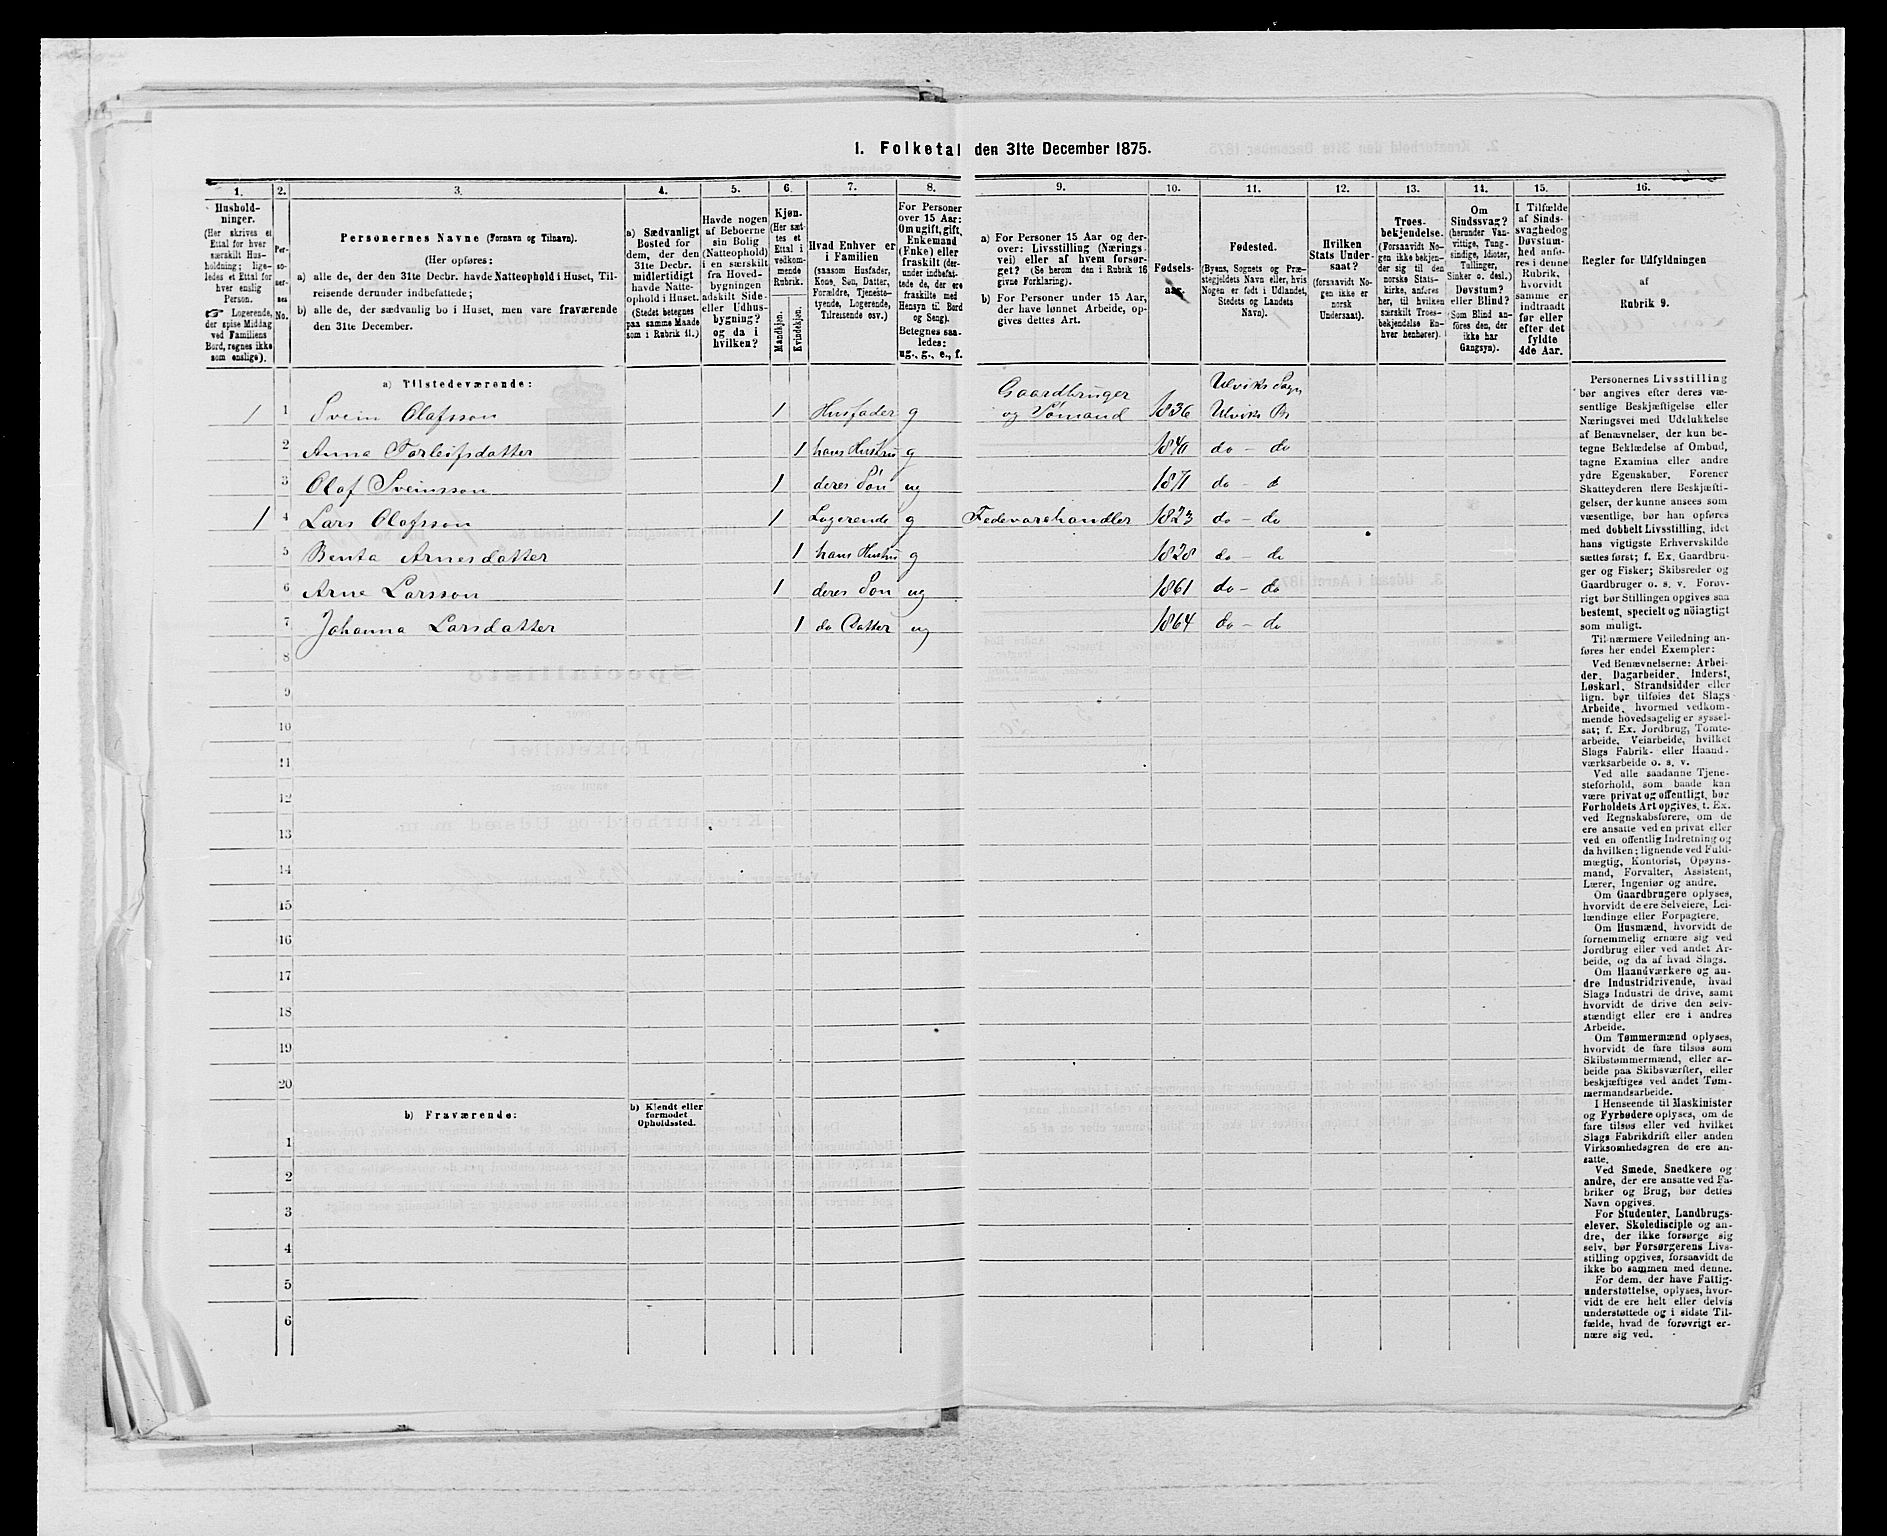 1. Folketal den 31te December 1875.
1. 2. 3. 4. 5. 6. 7. 8. 9. 10. 11. 12. 13. 14. 15. 16.
Hushold-
ninger.
(Her skrives et
Ettal for hver
særskilt Hus-
holdning; lige-
ledes et Ettal for
hver enslig
Person.
☞ Logerende,
der spise Middag
ved Familiens
Bord, regnes ikke
som enslige).
Per-
so-
ner-
nes
No.
Personernes Navne (Fornavn og Tilnavn).
(Her opføres:
a) alle de, der den 31te Decbr. havde Natteophold i Huset, Til-
reisende derunder indbefattede;
b) alle de, der sædvanlig bo i Huset, men vare fraværende
den 31te December.
a) Sædvanligt
Bosted for
dem, der den
31te Decbr.
midlertidigt
havde Natte-
ophold i Huset.
(Stedet betegnes
paa samme Maade
som i Rubrik 11.)
Havde nogen
af Beboerne
sin Bolig
(Natteophold)
i en særskilt
fra Hoved-
bygningen
adskilt Side-
eller Udhus-
bygning?
og da i
hvilken?
Kjøn.
(Her sæt-
tes et
Ettal i
vedkom-
mende
Rubrik.
Mandkjøn.
Kvindekjøn.
Hvad Enhver er
i Familien
(saasom Husfader,
Kone, Søn, Datter,
Forældre, Tjeneste-
tyende, Logerende,
Tilreisende osv.)
For Personer
over 15 Aar:
Om ugift, gift,
Enkemand
(Enke) eller
fraskilt (der-
under indbefat-
tede de, der ere
fraskilte med
Hensyn til Bord
og Seng).
Betegnes saa-
ledes:
ug., g., e., f.
a) For Personer 15 Aar og der-
over: Livsstilling (Nærings-
vei) eller af hvem forsør-
get? (Se herom den i Rubrik 16
givne Forklaring).
b) For Personer under 15 Aar,
der have lønnet Arbeide, op-
gives dettes Art.
Fødsels-
aar.
Fødested.
(Byens, Sognets og Præ-
stegjeldets Navn eller, hvis
Nogen er født i Udlandet,
Stedets og Landets
Navn).
Hvilken
Stats Under-
saat?
(forsaavidt No-
gen ikke er
norsk
Undersaat).
Troes-
bekjendelse.
(Forsaavidt No-
gen ikke bekjen-
der sig til den
norske Stats-
kirke, anføres
her, til hvilken
særskilt Troes-
bekjendelse En-
hver henhører).
Om
Sindssvag?
(herunder Van-
vittige, Tung-
sindige, Idioter,
Tullinger,
Sinker o. desl.)
Døvstum?
eller Blind?
(Som Blind an-
føres den, der
ikke har
Gangsyn).
I Tilfælde
af Sinds-
svaghed og
Døvstum-
hed anfø-
res i denne
Rubrik,
hvorvidt
samme er
indtraadt
før eller
efter det
fyldte
4de Aar.
Regler for Udfyldningen
af
Rubrik 9.
a) Tilstedeværende:
Ulviks Sogn
1 1 Svein Olafsson 1 Husfader g Gaardbruger og Sømand 1836 Ulviks Pr
2 Anna Torleifsdatter 1 hans Hustru g 1840 do - do
3 Olaf Sveinsson 1 deres Søn ug 1871 do - d
1 4 Lars Olafsson 1 Logerende g Fedevarehandler 1823 do - do
5 Benta Arnesdatter 1 hans Hustru g 1828 do - do
6 Arne Larsson 1 deres Søn ug 1861 do - do
7 Johanna Larsdatter 1 do Datter ug 1864 do - do
8
9
10
11
12
13
14
15
16
17
18
19
20
b) Fraværende:
b) Kjendt eller
formodet
Opholdssted.
1
2
3
4
5
6
Personernes Livsstilling
bør angives efter deres væ-
sentlige Beskjæftigelse eller
Næringsvei med Udelukkelse
af Benævnelser, der kun be-
tegne Beklædelse af Ombud,
tagne Examina eller andre
ydre Egenskaber. Forener
Skatteyderen flere Beskjæfti-
gelser, der kunne ansees som
væsentlige, bør han opføres
med dobbelt Livsstilling, idet
hans vigtigste Erhvervskilde
sættes først; f. Ex. Gaardbru-
ger og Fisker; Skibsreder og
Gaardbruger o. s. v. Forøv-
rigt bør Stillingen opgives saa
bestemt, specielt og nöiagtigt
som muligt.
Til nærmere Veiledning an-
føres her endel Exempler:
Ved Benævnelserne: Arbei-
der, Dagarbeider, Inderst,
Løskarl, Strandsidder eller
lign. bør tilføies det Slags
Arbeide, hvormed vedkom-
mende hovedsagelig er syssel-
sat; f. Ex. Jordbrug, Tomte-
arbeide, Veiarbeide, hvilket
Slags Fabrik- eller Haand-
værksarbeide o. s. v.
Ved alle saadanne Tjene-
steforhold, som baade kan
være privat og offentligt, bør
Forholdets Art opgives, t. Ex.
ved Regnskabsførere, om de
ere ansatte ved en privat eller
ved en offentlig Indretning og
da hvilken; lignende ved Fuld-
mægtig, Kontorist, Opsyns-
mand, Forvalter, Assistent,
Lærer, Ingeniør og andre.
Om Gaardbrugere oplyses,
hvorvidt de ere Selveiere, Lei-
lændinge eller Forpagtere.
Om Husmænd, hvorvidt de
fornemmelig ernære sig ved
Jordbrug eller ved andet Ar-
beide, og da af hvad Slags.
Om Haandværkere og an-
dre Industridrivende, hvad
Slags Industri de drive, samt
hvorvidt de drive den selv-
stændigt eller ere i andres
Arbeide.
Om Tømmermænd oplyses,
hvorvidt de fare tilsøs som
Skibstømmermænd, eller ar-
beide paa Skibsværfter, eller
beskjæftiges ved andet Tøm-
mermandsarbeide.
I Henseende til Maskinister
og Fyrbødere oplyses, om de
fare tilsøs eller ved hvilket
Slags Fabrikdrift eller anden
Virksomhedsgren de ere an-
satte.
Ved Smede, Snedkere og
andre, der ere ansatte ved Fa-
briker og Brug, bør dettes
Navn opgives.
For Studenter, Landbrugs-
elever, Skoledisciple og an-
dre, der ikke forsørge sig
selv, bør Forsørgerens Livs-
stilling opgives, forsaavidt de
ikke bo sammen med denne.
For dem, der have Fattig-
understøttelse, oplyses, hvor-
vidt de ere helt eller delvis
understøttede og i sidste Til-
fælde, hvad de forøvrigt er-
nære sig ved.